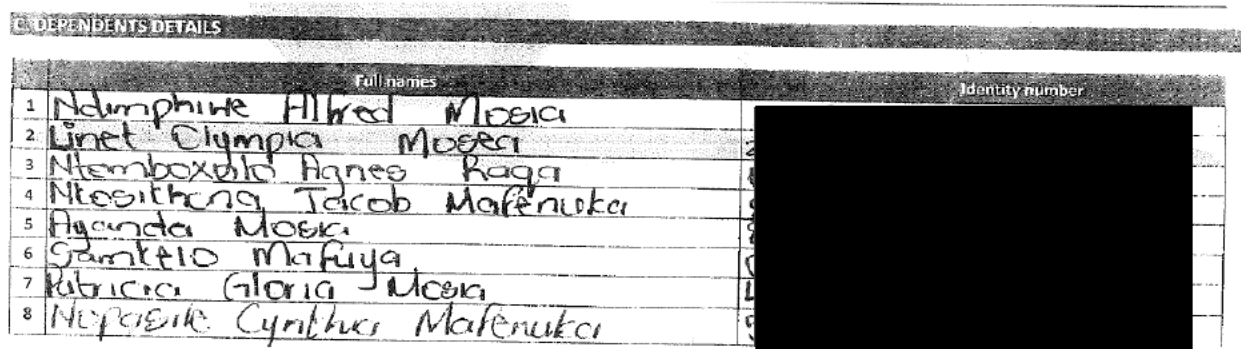 C. DEPENDENTS DETAILS
Full names Identity number
1 Ndimphiwe Alfred Mosia
2 Linet Olympia Mosea
3 Agnes Raqa
4 Jacob Mafenuka
5 Ayanda Mosia
6 Samkelo Mafuya
7 Patricia Gloria Mosia
8 Cynthia Mafenuka